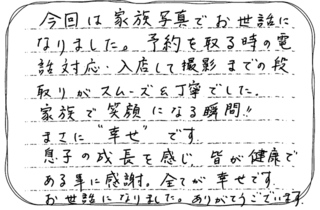 今回は家族写真でお世話に
なりました。予約を取る時の電
話対応・入店して撮影までの段
取りがスムーズ&丁寧でした。
家族で笑顔になる瞬間!!
まさに"幸せ"です。
息子の成長を感じ 皆が健康で
ある事に感謝。全てが幸せです。
お世話になりました。ありがとうございます。